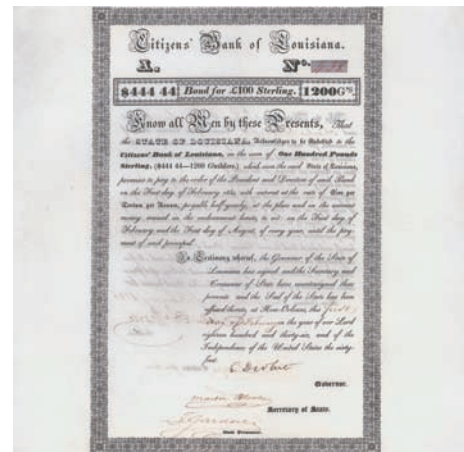 Citizens' Bank of Louisiana.
A. No.
$444 44 Bond for £100 Sterling. 1200 Gs.
Know all Men by these Presents, That
the STATE OF LOUISIANA, Acknowledges to be Indebted to the
Citizens' Bank of Louisiana, in the sum of One Hundred Pounds
Sterling, ($444 44—1200 Guilders,) which sum the said State of Louisiana,
promises to pay to the order of the President and Directors of said Bank
on the First day of February with interest at the rate of
per Annum, payable half yearly, at the place and in the
money named in the endorsement hereto, to wit: on the First day of
February and the First day of August, of every year, until the pay-
ment of said principal.
In Testimony whereof, the Governor of the State of
Louisiana has signed and the Secretary and
Treasurer of State have countersigned these
presents and the Seal of the State has been
affixed thereto, at New Orleans, this first
day of February in the year of our Lord
eighteen hundred and thirty-six, and of the
Independence of the United States the sixty-
Governor.
Secretary of State.
State Treasurer.